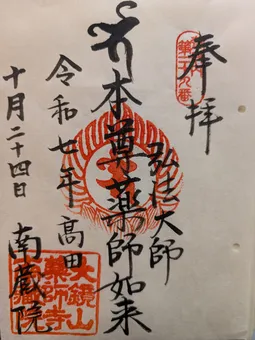 奉拝
弘法大師
本尊薬師如来
高田
南蔵院
令和七年
十月二十四日
大鏡山
薬師寺
南蔵院